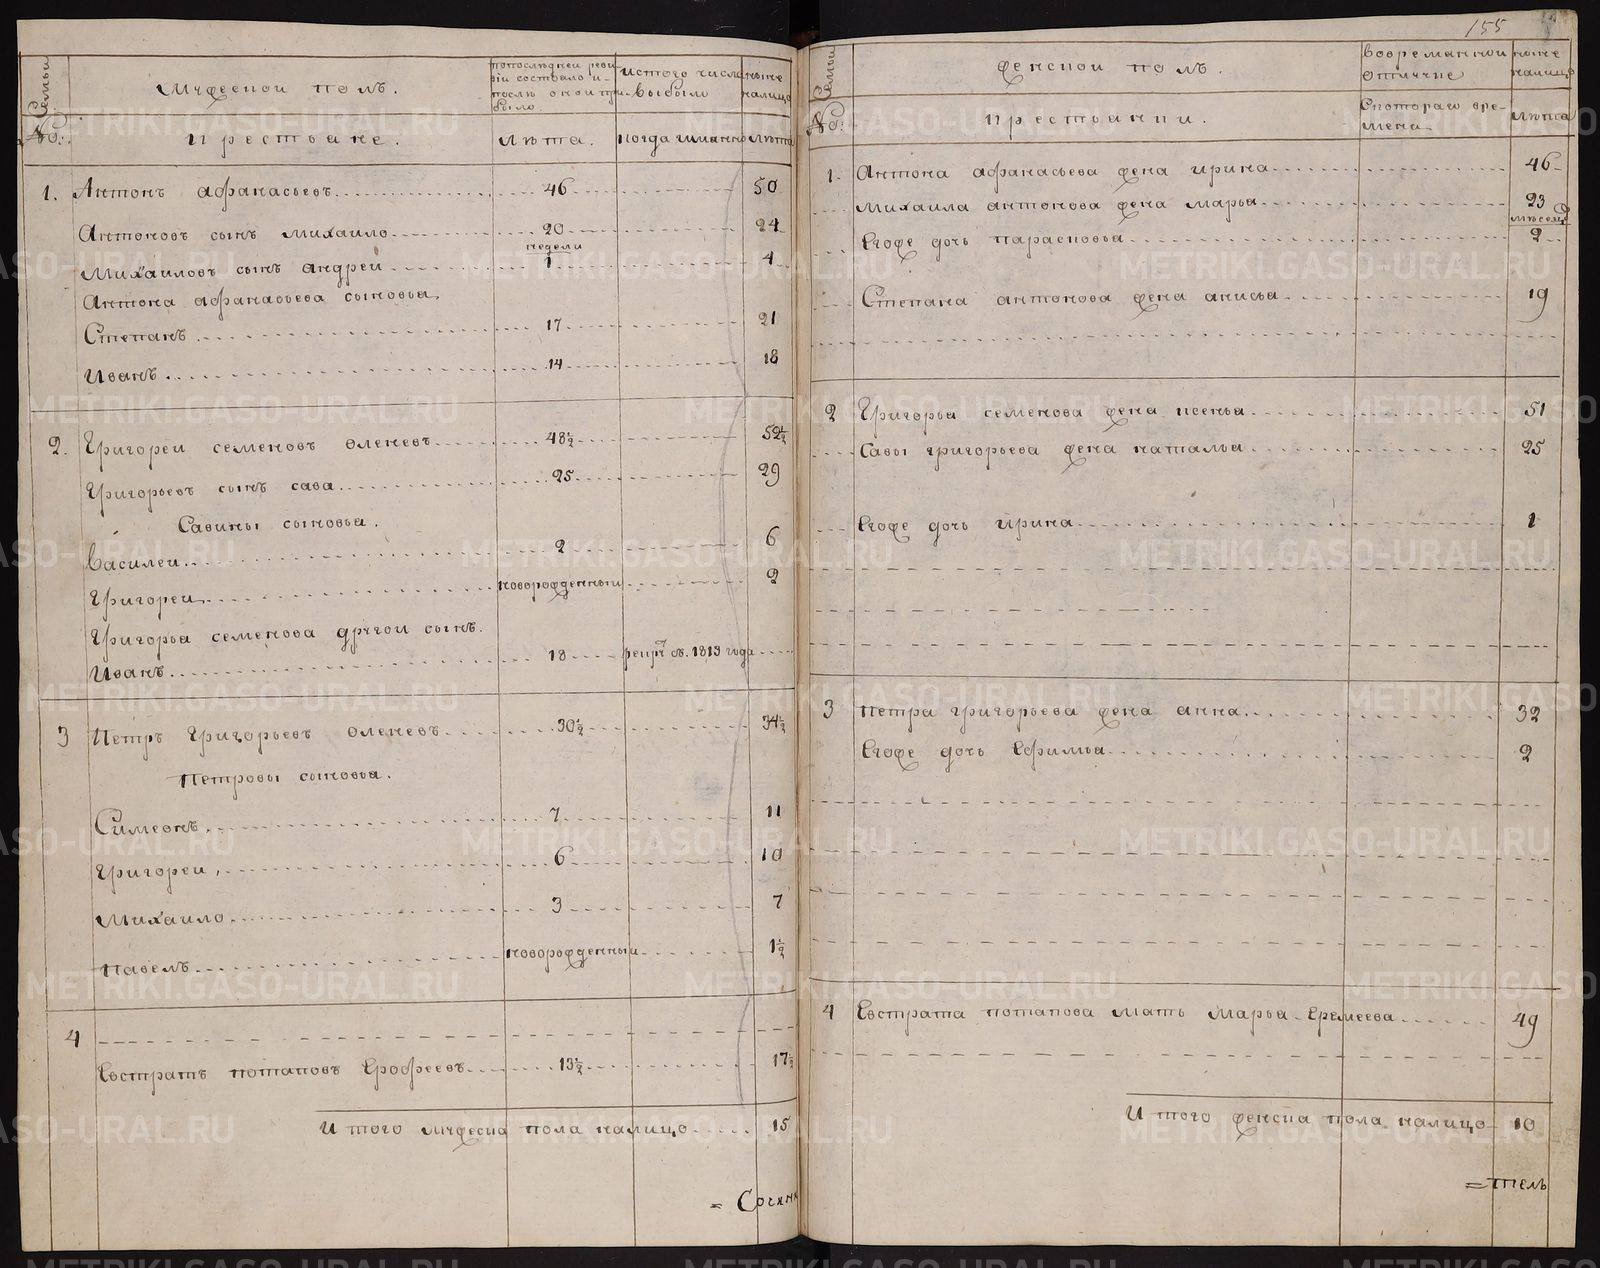 155
Семьи
Мужескои полъ.
попослѣднеи реви-
зіи состояло и-
послѣ онои при-
было.
истого числа
выбыло
ныне
налицо
№:
крестьяне.
лѣта.
когда имянно
лѣта
1. Антонъ афанасьевъ 46 50
Антоновъ сынъ михаило 20 24
недели
Михаиловъ сынъ андреи 1 4
Антона афанасьева сыновья,
Степанъ 17 21
Иванъ 14 18
2. Григореи семеновъ оленевъ 48½ 52½
Григорьевъ сынъ сава 25 29
Савины сыновья.
Василеи 2 6
Григореи новорожденныи 2
Григорья семенова другои сынъ.
Иванъ 18 въ 1813 года
3 Петръ Григорьевъ оленевъ 30½ 34½
Петровы сыновья.
Симеонъ 7 11
Григореи 6 10
Михаило 3 7
Павелъ новорожденныи 1½
4
Евстратъ потаповъ Ерофеевъ 13½ 17½
Итого мужеска пола налицо 15
= Сочин
Семьи
женскои полъ.
вовременнои
отлучке
ныне
налицо
№:
крестьянки.
Скотораго вре-
мена
лѣта
1. Антона афанасьева жена ирина 46
Михаила антонова жена марья 23
мѣсяц
Егоже дочь парасковья 2
Степана антонова жена анисья 19
2 Григорья семенова жена ксенья 51
Савы григорьева жена наталья 25
Егоже дочь ирина 1
3 Петра григорьева жена анна 32
Егоже дочь Ефимья 2
4 Евстрата потапова мать марья Еремеева 49
Итого женска пола налицо 10
= тель
METRIKI.GASO-URAL.RU